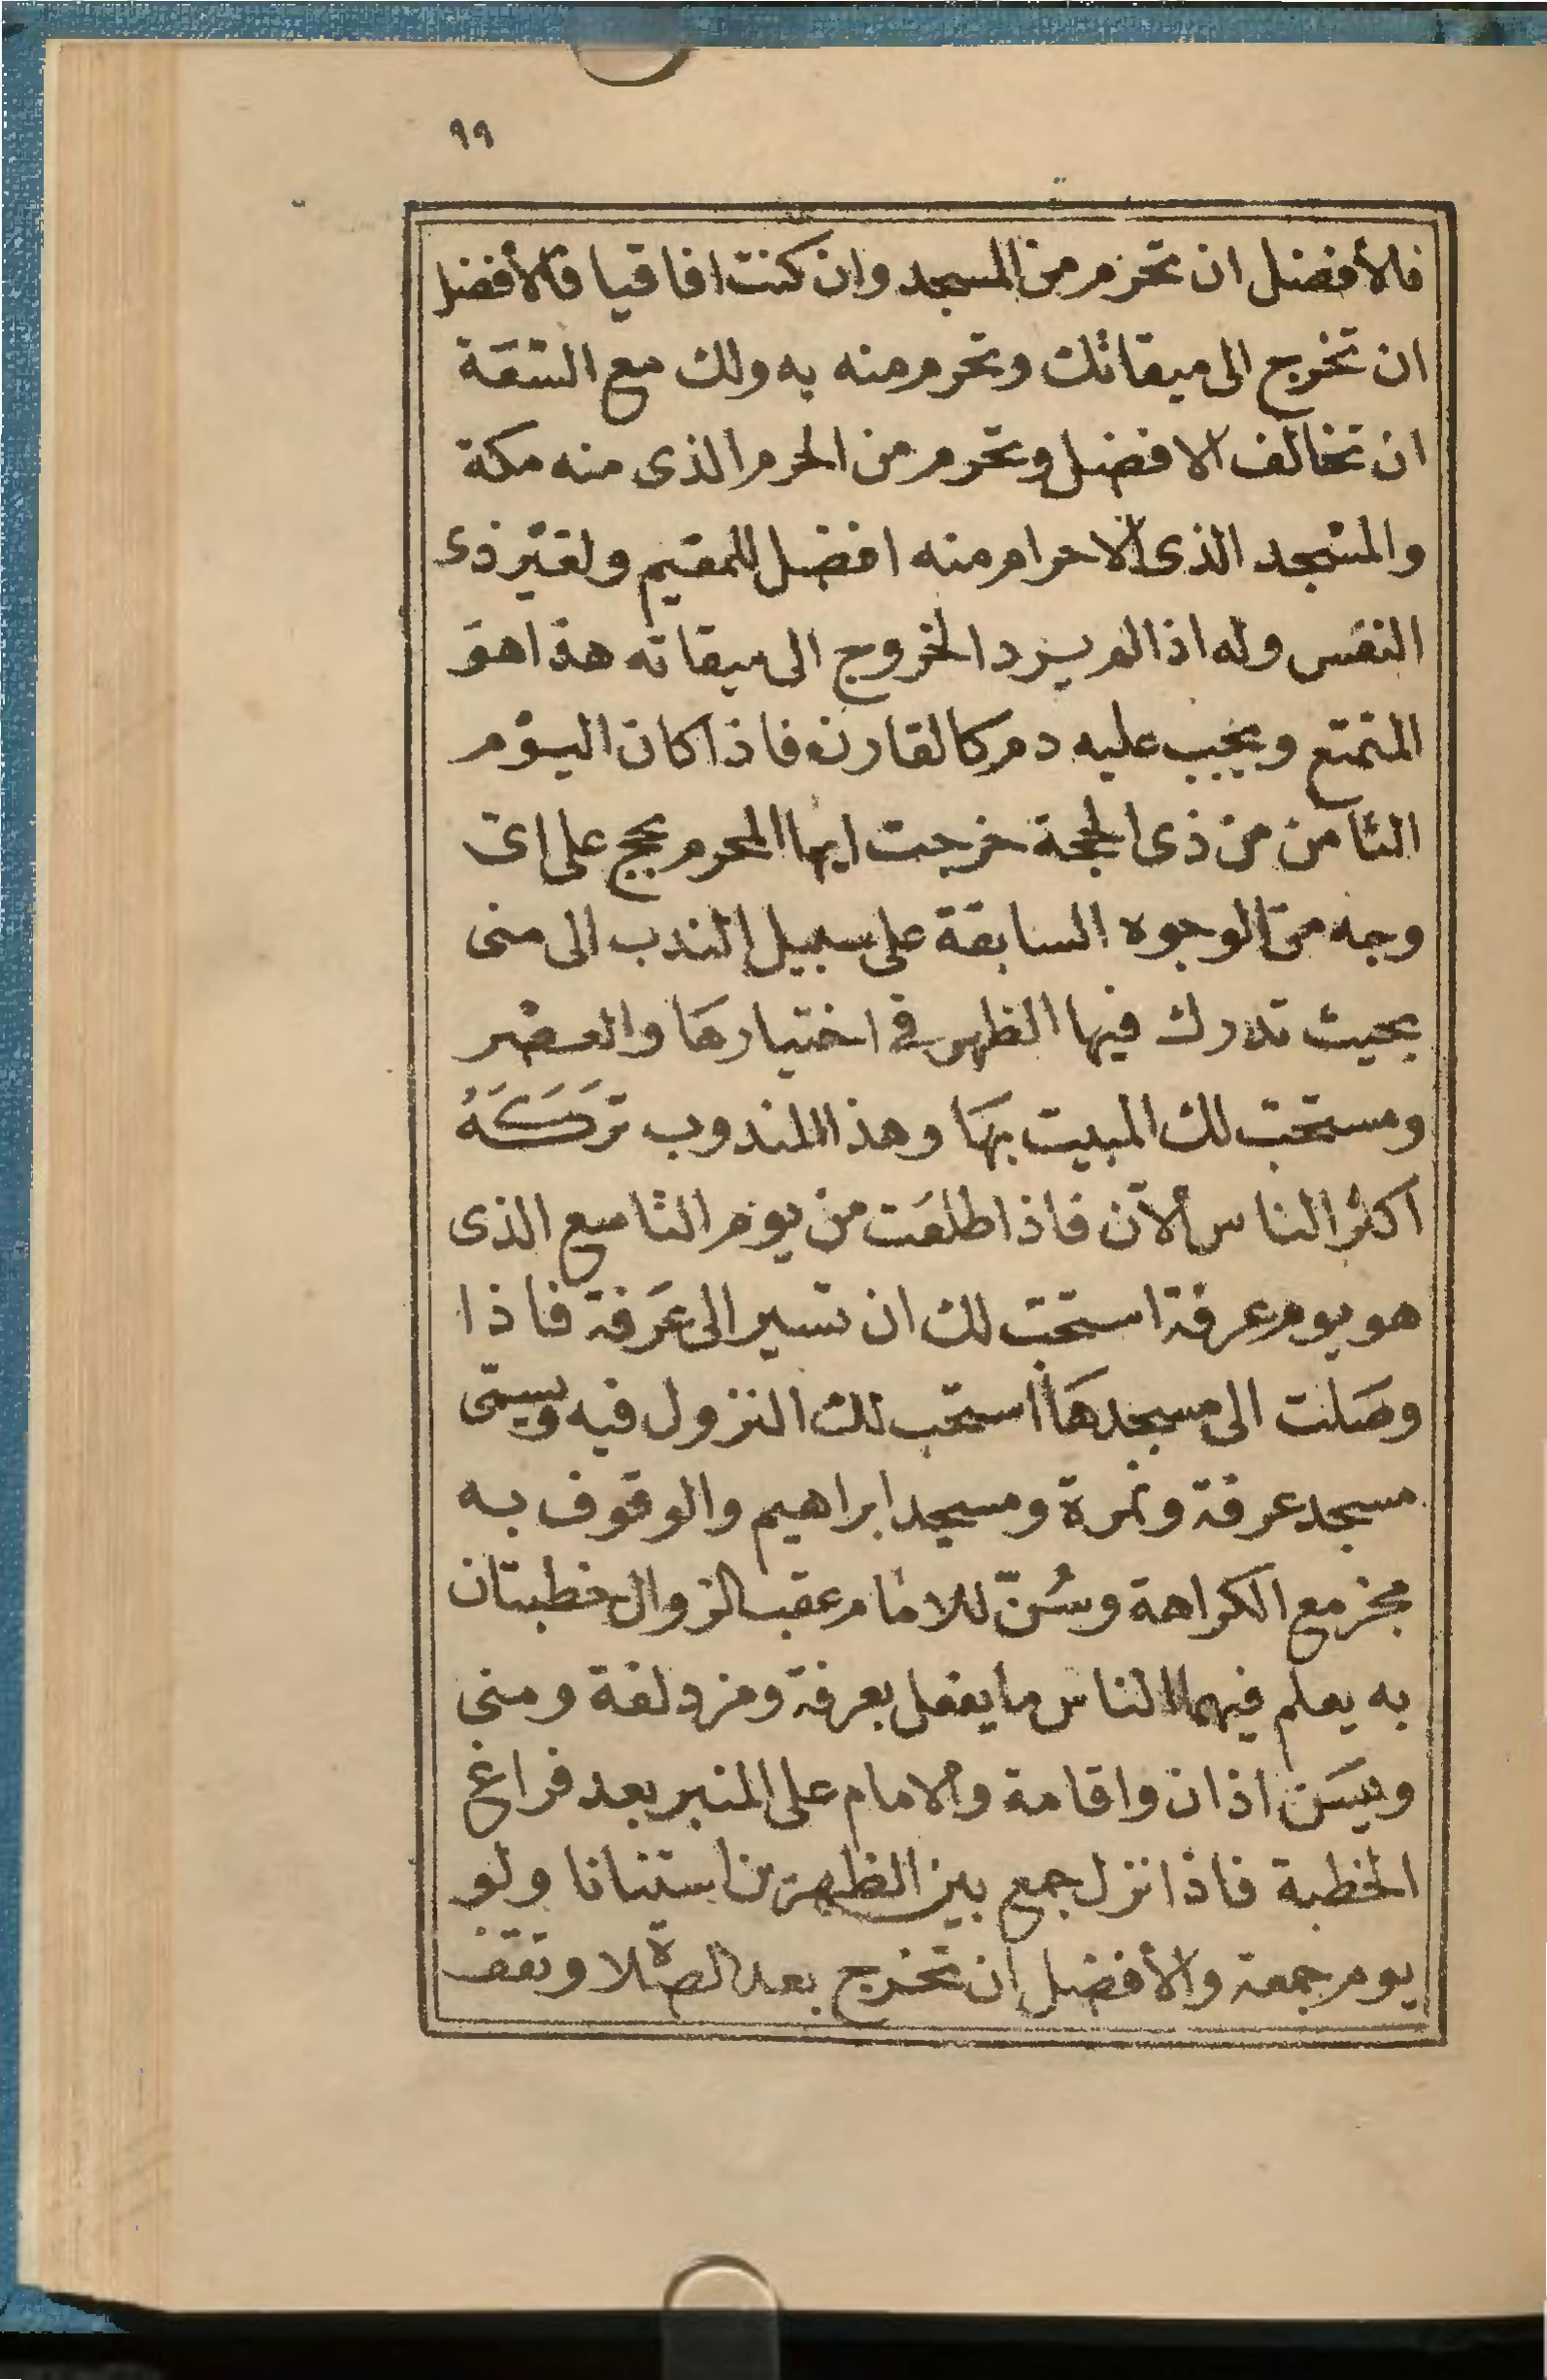 ٩٩
فالأفضل ان تحرم من المسجد وان كنت افاقيا فالأفضل
ان تخرج الى ميقاتك وتحرم منه به ولك مع السَّعَة
ان تخالف الافضل وتحرم من الحرم الذى منه مكة
والمسْجد الذى الاحرام منه افضل للمقيم ولغيْر ذى
النفَس وله اذا لم يرد الخروج الى ميقاته هذا هوَ
المتمتع ويجب عليه دم كالقارن فاذا كان اليوْم
الثامن من ذى الحجة خرجت ايها المحرم بحج على اىّ
وجه من الوجوه السابقة على سبيل الندب الى منى
بحيث تدرك فيها الظهر فى اختيارهَا والعصْر
ومستحبّ لك المبيت بهَا وهذا المندوب تَرَكَهُ
اكثر الناس الآن فاذا طلعَت من يوم التاسع الذى
هو يوم عرفة استحبّ لك ان تسير الى عَرَفة فاذا
وصَلت الى مسجدهَا استحب لك النزول فيه ويسمّى
مسجد عرفة ونمرة ومسجد ابراهيم والوقوف به
مجز مع الكراهة وسُنّ للامام عقب الزوال خطبتان
به يعلم فيهما الناس ما يفعل بعرفة ومزدلفة ومنى
ويسَن اذان واقامة والامام على المنبر بعد فراغ
الخطبة فاذا نزل جمع بين الظهرين استنانا ولو
يوم جمعة والأفضل ان تخرج بعد الصلاة وتقف